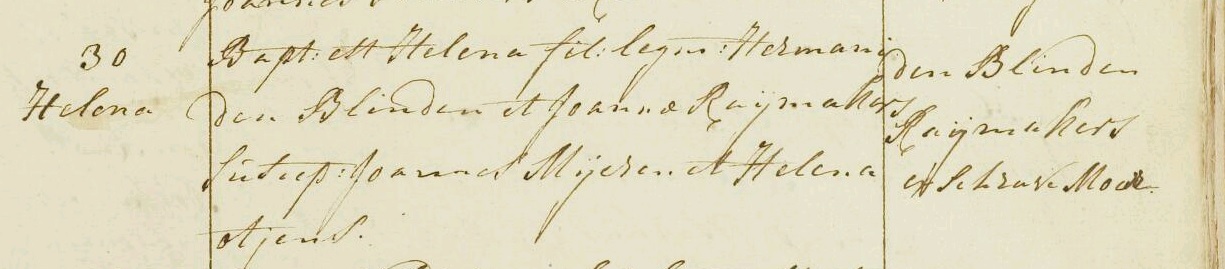 30
Helena
Bapt: est Helena fil: legm: Hermani
den Blinden et Joannæ Raÿmakers
Suscep: Joannes Mÿeren et Helena
otjens.
den Blinden
Raÿmakers